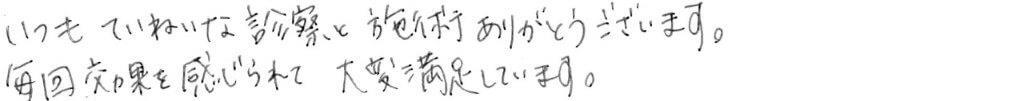 いつも ていねいな診察と 施術 ありがとうございます。
毎回効果を感じられて 大変満足しています。